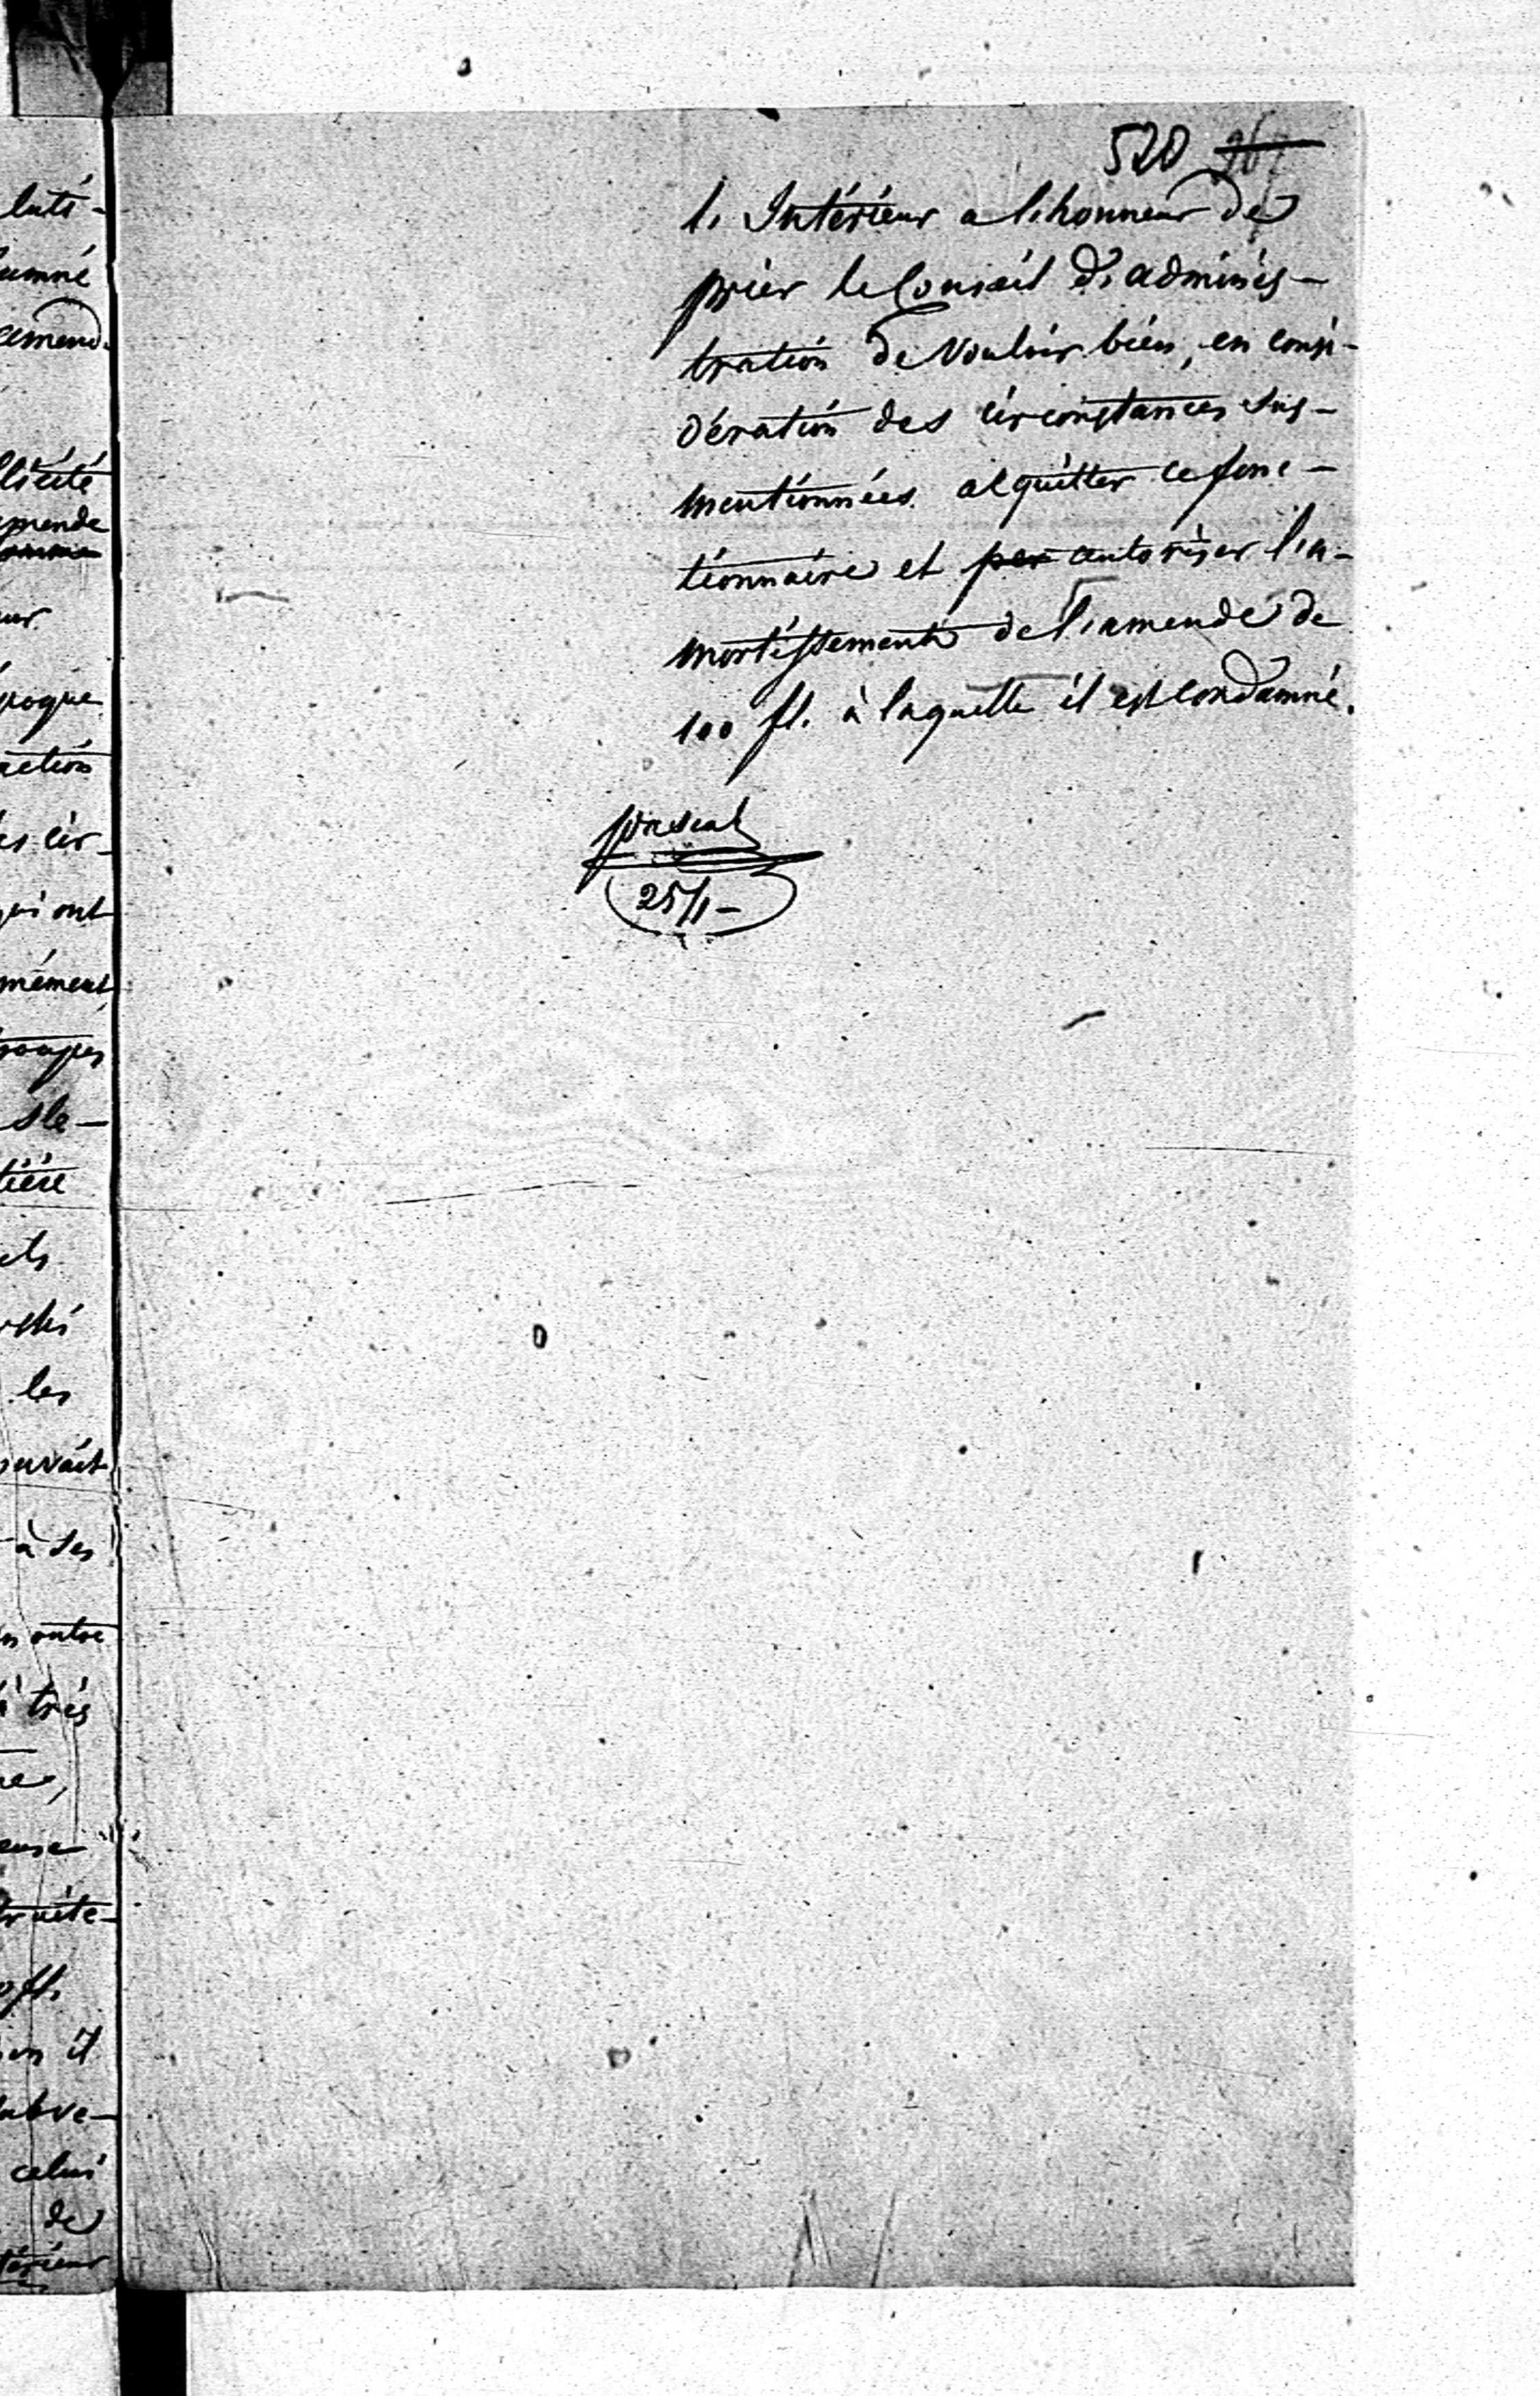 520 267
l'Intérieur a l'honneur de
prier le Conseil d'adminis-
tration de vouloir bien, en consi-
dération des circonstances sus-
mentionnées acquitter ce fonc-
tionnaire et per autoriser l'a-
mortissement de l'amende de
100 fl. à laquelle il est condamné.
25/1-
luti-
amné
amend.
licité
eprende
ur
époque
action
es cir-
qui ont
mément
troupes
sle-
tière
les
ouvait
à ses
en outre
très
traite-
fl.
il
subve-
celui
de
térieur